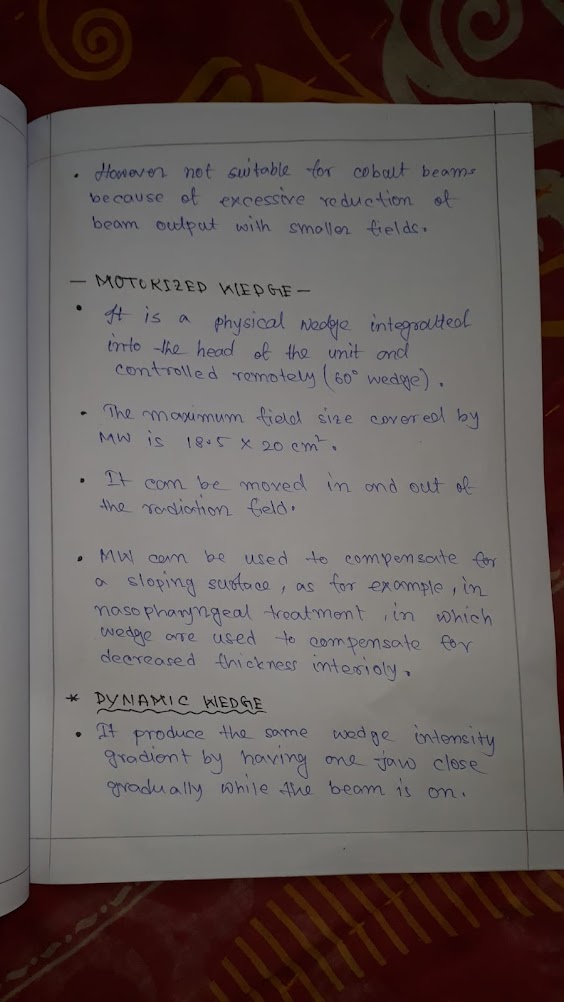 • However not suitable for cobalt beams
because of excessive reduction of
beam output with smaller fields.
- MOTORIZED WEDGE -
• It is a physical wedge integratted
into the head of the unit and
controlled remotely (60° wedge).
• The maximum field size covered by
MW is 18.5 × 20 cm².
• It can be moved in and out of
the radiation field.
• MW can be used to compensate for
a sloping surface, as for example, in
nasopharyngeal treatment, in which
wedge are used to compensate for
decreased thickness interioly.
* DYNAMIC WEDGE
• It produce the same wedge intensity
gradient by having one jaw close
gradually while the beam is on.